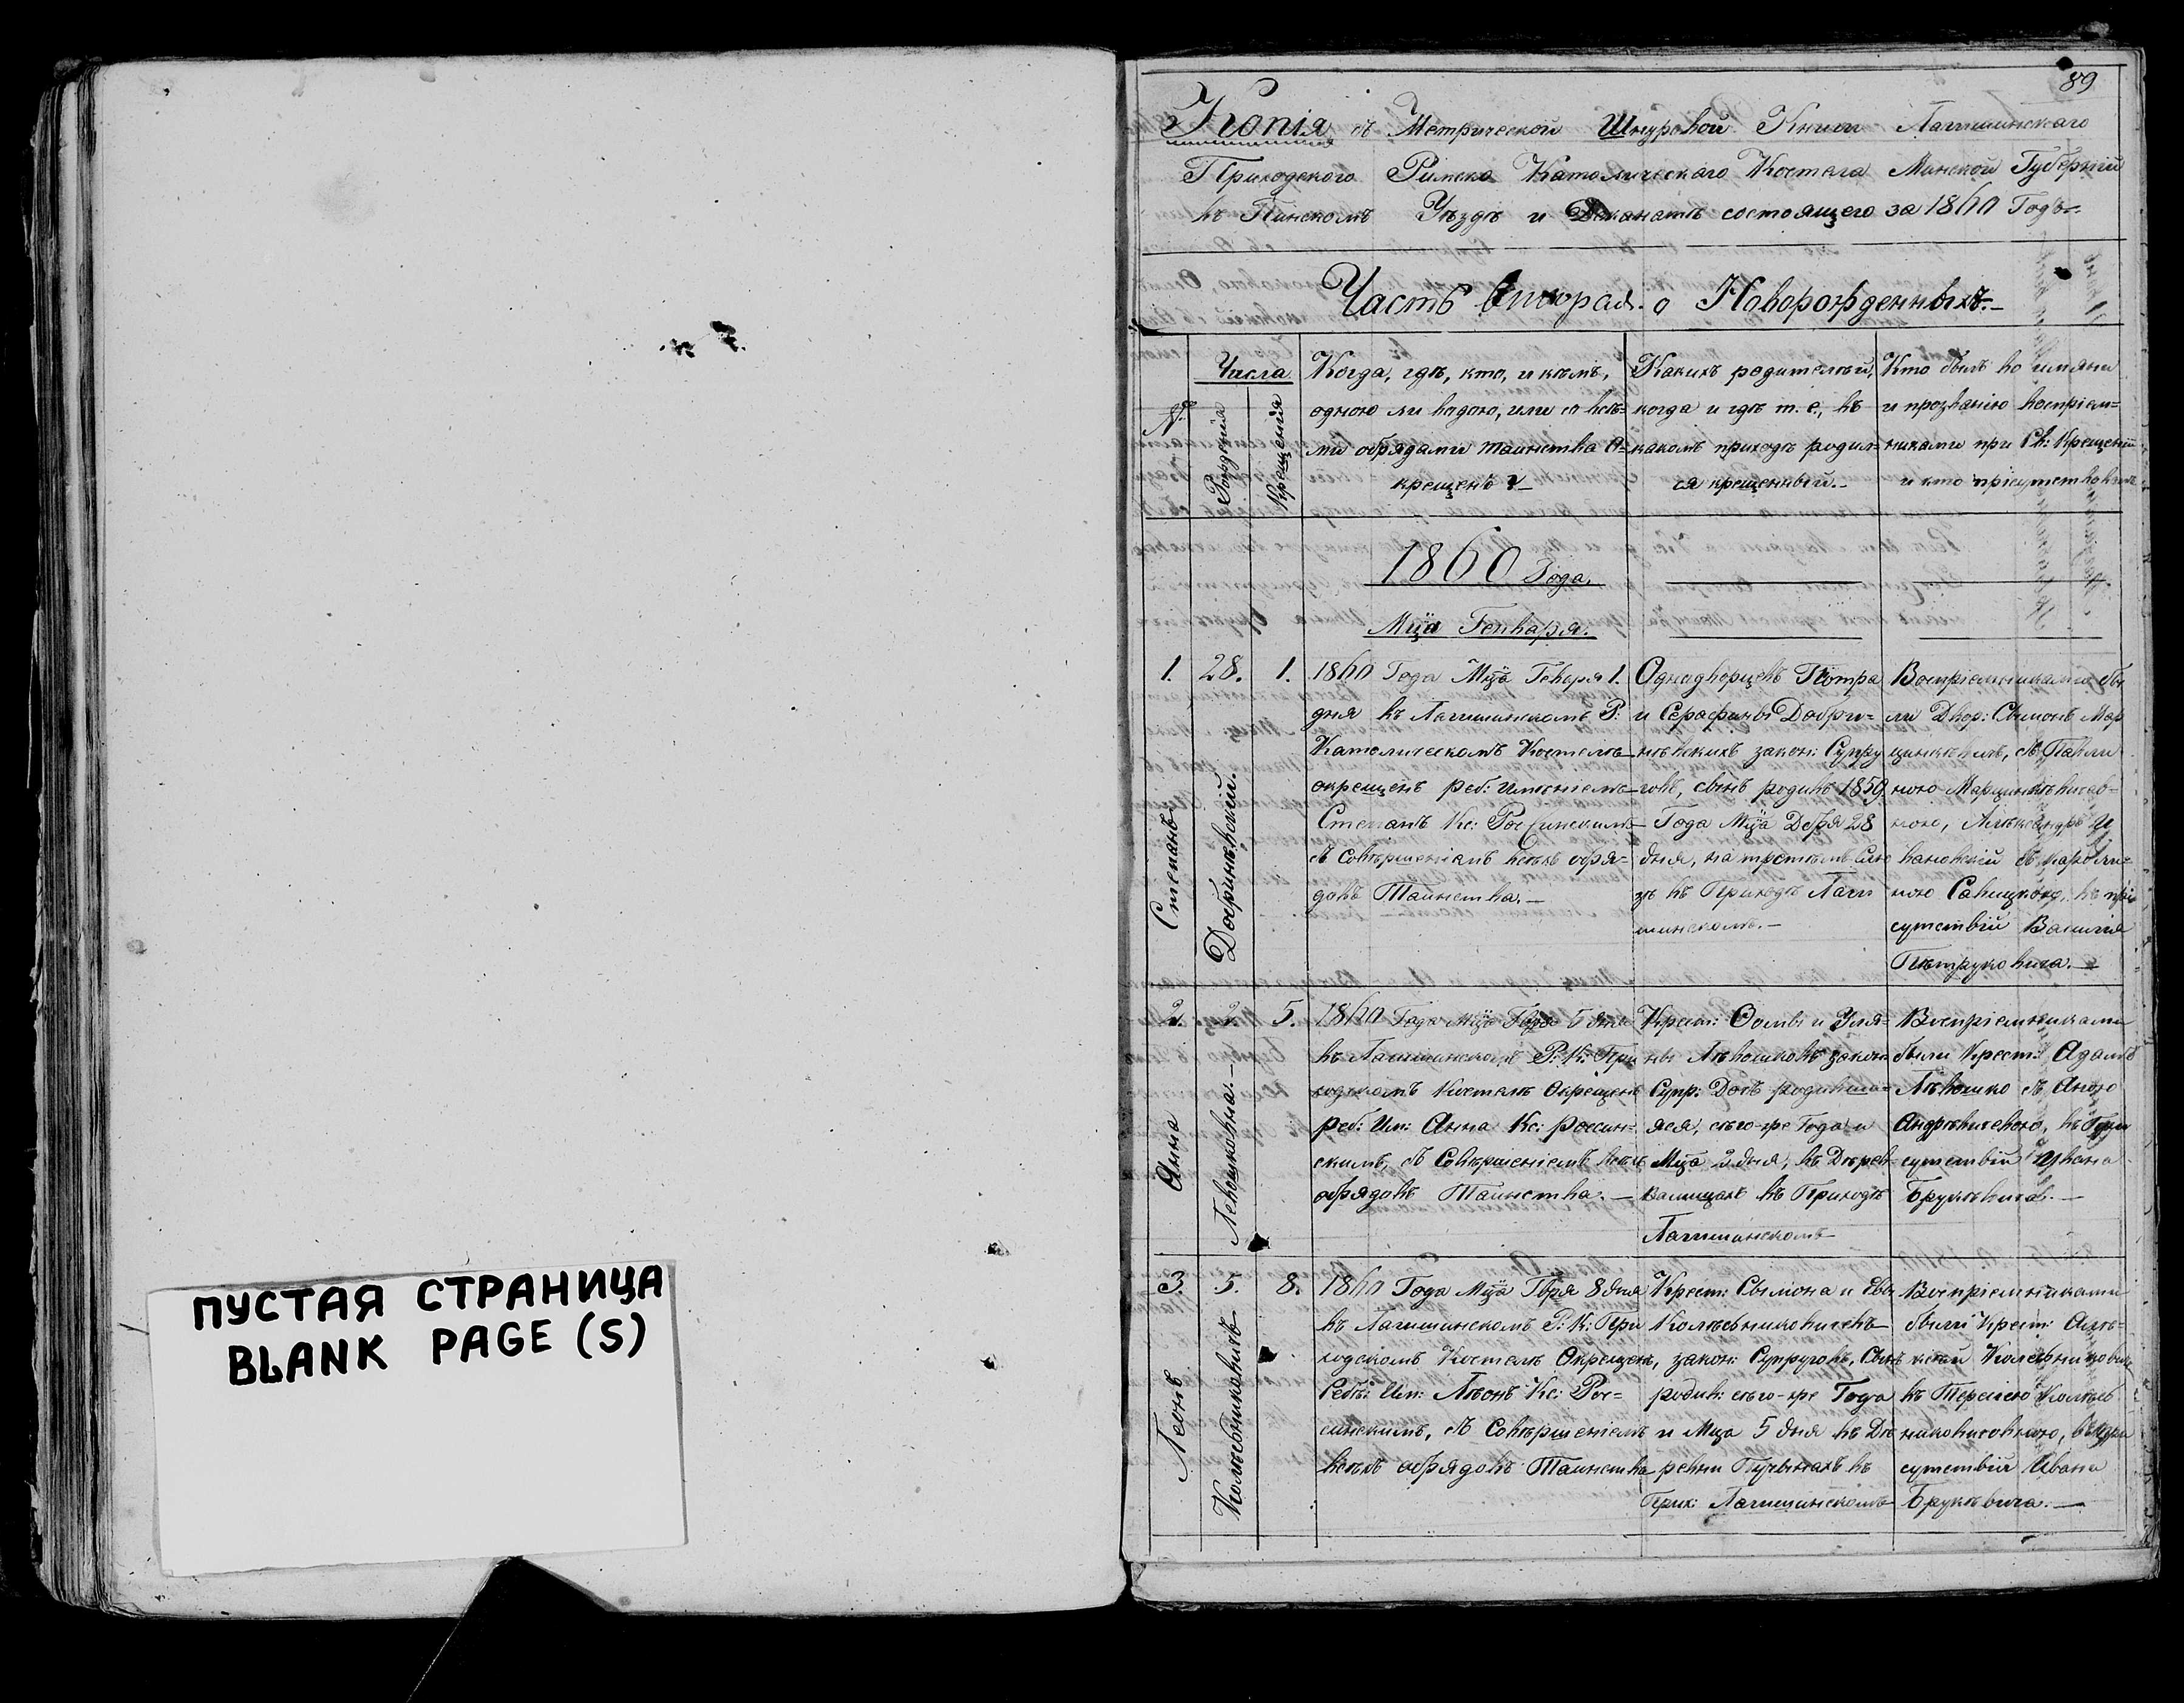 ПУСТАЯ СТРАНИЦА
BLANK PAGE (S)
89
Копія съ Метрической Шнуровой Книги Лагишинскаго
Приходского Римско Католическаго Костела Минской Губерніи
въ Пинскомъ Уѣздѣ и Деканатѣ состоящего за 1860 Годъ.
Часть вторая. о Новорожденныхъ.
№
Числа
Рожденія
Крещенія
Когда, гдѣ, кто, и кѣмъ,
одною ли водою, или со всѣ=
ми обрядами таинства о=
крещенъ?
Какихъ родителѣй,
когда и гдѣ т. е, въ
какомъ приходѣ родил=
ся крещенный.
Кто былъ по имяни
и прозванію воспріем=
никами при Св: Крещеніи
и кто присутствовалъ
1860 Года.
Мца Генваря.
1.
Степанъ
28.
Добринѣвскій.
1.
1860 Года Мца Генваря 1.
дня въ Лагишинскомъ Р:
Католическомъ Костелѣ
окрещенъ реб: имѣніемъ
Степанъ Кс: Россинскимъ
съ совѣршеніемъ всѣхъ обря=
довъ Таинства.
Однодворцевъ Пётра
и Серафины Добри=
нѣвскихъ закон: Супру
говъ, сынъ родивъ 1859
Года Мца Дебря 28
дня,
въ Приходѣ Лаги
шинскомъ.
Воспріемниками бы
ли Двор: Сымонъ Мар
цинкѣвичъ, съ Павли
ною Марцинкѣвичев=
ною, Алѣксандръ И
вановскій съ Каролі=
ною Савицкою, въ при
сутствіи Василія
Пѣтруковича.
2.
Анна
2.
Левошковна.
5.
1860 Года Мца Гваря 5 дня
въ Лагишинскомъ Р: К: При
ходскомъ Костелѣ Окрещена
реб: Им: Анна Кс: Россин=
скимъ, съ Совѣршеніемъ всѣхъ
обрядовъ Таинства.
Крест: Фомы и Уля=
ны Лѣвошковъ закон
Супр: Дочь родивша=
яся, сего-же Года и
Мца 2 дня, въ Дѣрев
Валищахъ въ Приходѣ
Лагишинскомъ
Воспріемниками
были Крест: Адамъ
Лѣвошко съ Анною
Андрѣвичевою, въ При
сутствіи Ивана
Брукѣвича.
3.
Леонъ
5.
Колѣсниковичъ
8.
1860 Года Мца Гвря 8 дня
въ Лагишинскомъ Р: К: При
ходскомъ Костелѣ Окрещенъ
Реб: Им: Лѣонъ Кс: Рос=
синскимъ, съ Совѣршеніемъ
всѣхъ обрядовъ Таинства
Крест: Сымона и Евы
Колѣсниковичевъ
закон: Супруговъ, Сынъ
родив: сего-же Года
и Мца 5 дня въ Дѣ
ревни Пучинахъ въ
Прих: Лагишинскомъ
Воспріемниками
были Крест: Алѣ=
ксѣй Колѣсникович
съ Терезією Колѣс
никовичовною, въ при
сутствіи Ивана
Брукѣвича.